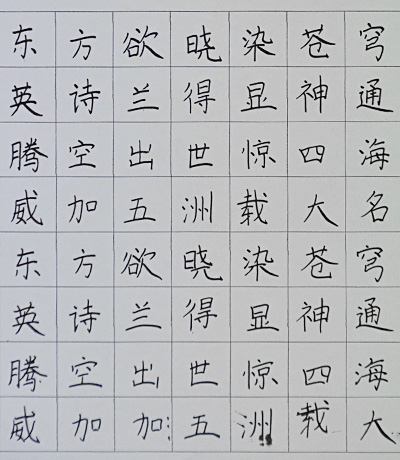 东方欲晓染苍穹
英诗兰得显神通
腾空出世惊四海
威加五洲载大名
东方欲晓染苍穹
英诗兰得显神通
腾空出世惊四海
威加加五洲载大